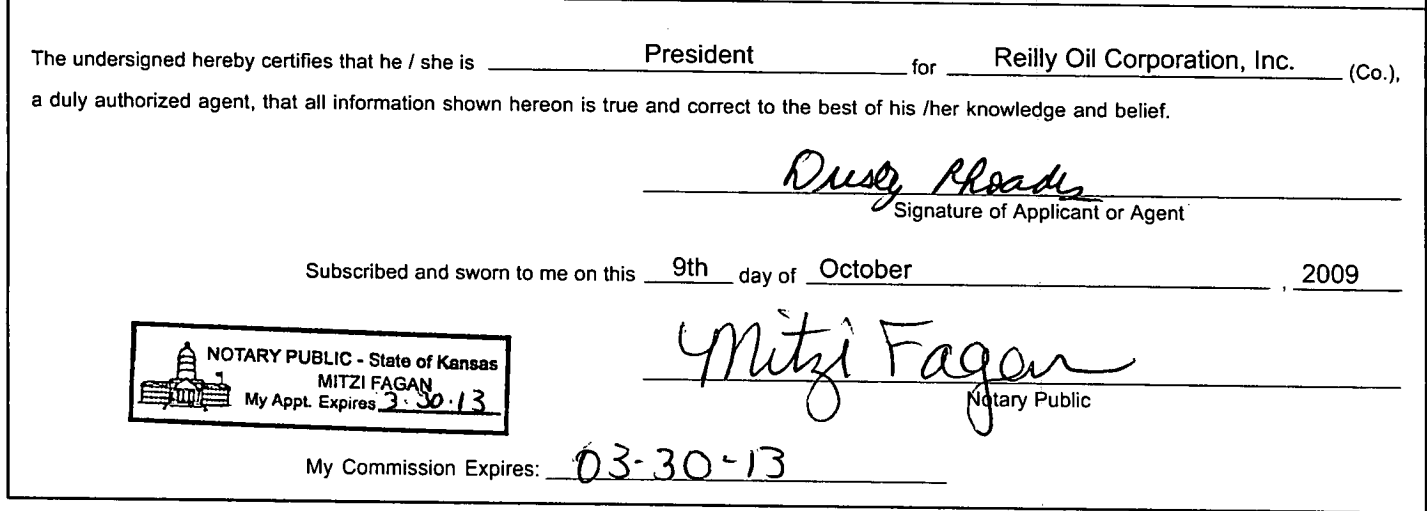 The undersigned hereby certifies that he / she is President for Reilly Oil Corporation, Inc. (Co.),
a duly authorized agent, that all information shown hereon is true and correct to the best of his /her knowledge and belief.
Dusty Rhoades
Signature of Applicant or Agent
Subscribed and sworn to me on this 9th day of October , 2009
Mitzi Fagan
Notary Public
NOTARY PUBLIC - State of Kansas
MITZI FAGAN
My Appt. Expires 3·30·13
My Commission Expires: 03-30-13